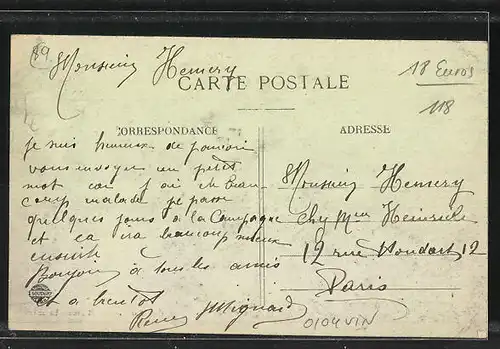 89
Monsieur Hemery
CARTE POSTALE
18 Euros
118
CORRESPONDANCE
ADRESSE
Je suis heureux de pouvoir
vous envoyer un petit
mot car j'ai été beau
coup malade je passe
quelques jours à la Campagne
et ça ira beaucoup mieux
ensuite
Bonjour à tous les amis
et a bientot
Rene Mignard
Monsieur Hemery
Chez Mr
12 rue 12
Paris
0104VIN